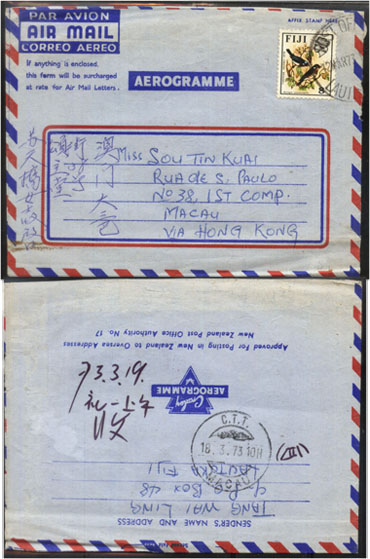 PAR AVION
AIR MAIL
CORREO AEREO
If anything is enclosed,
this form will be surcharged
at rate for Air Mail Letters.
AEROGRAMME
AFFIX STAMP HERE
FIJI
澳門大
Miss SOU TIN KUAI
RUA DE S. PAULO
No 38, 1ST COMP.
MACAU
VIA HONG KONG
Approved for Posting in New Zealand to Oversea Addresses
New Zealand Post Office Authority No. 17
73.3.19.
礼一上午
收
Croxley
AEROGRAMME
C.T.T.
18.3.73 10H
MACAU
SENDER'S NAME AND ADDRESS
TANG WAI LING
P.O. BOX 48
LAUTOKA FIJI